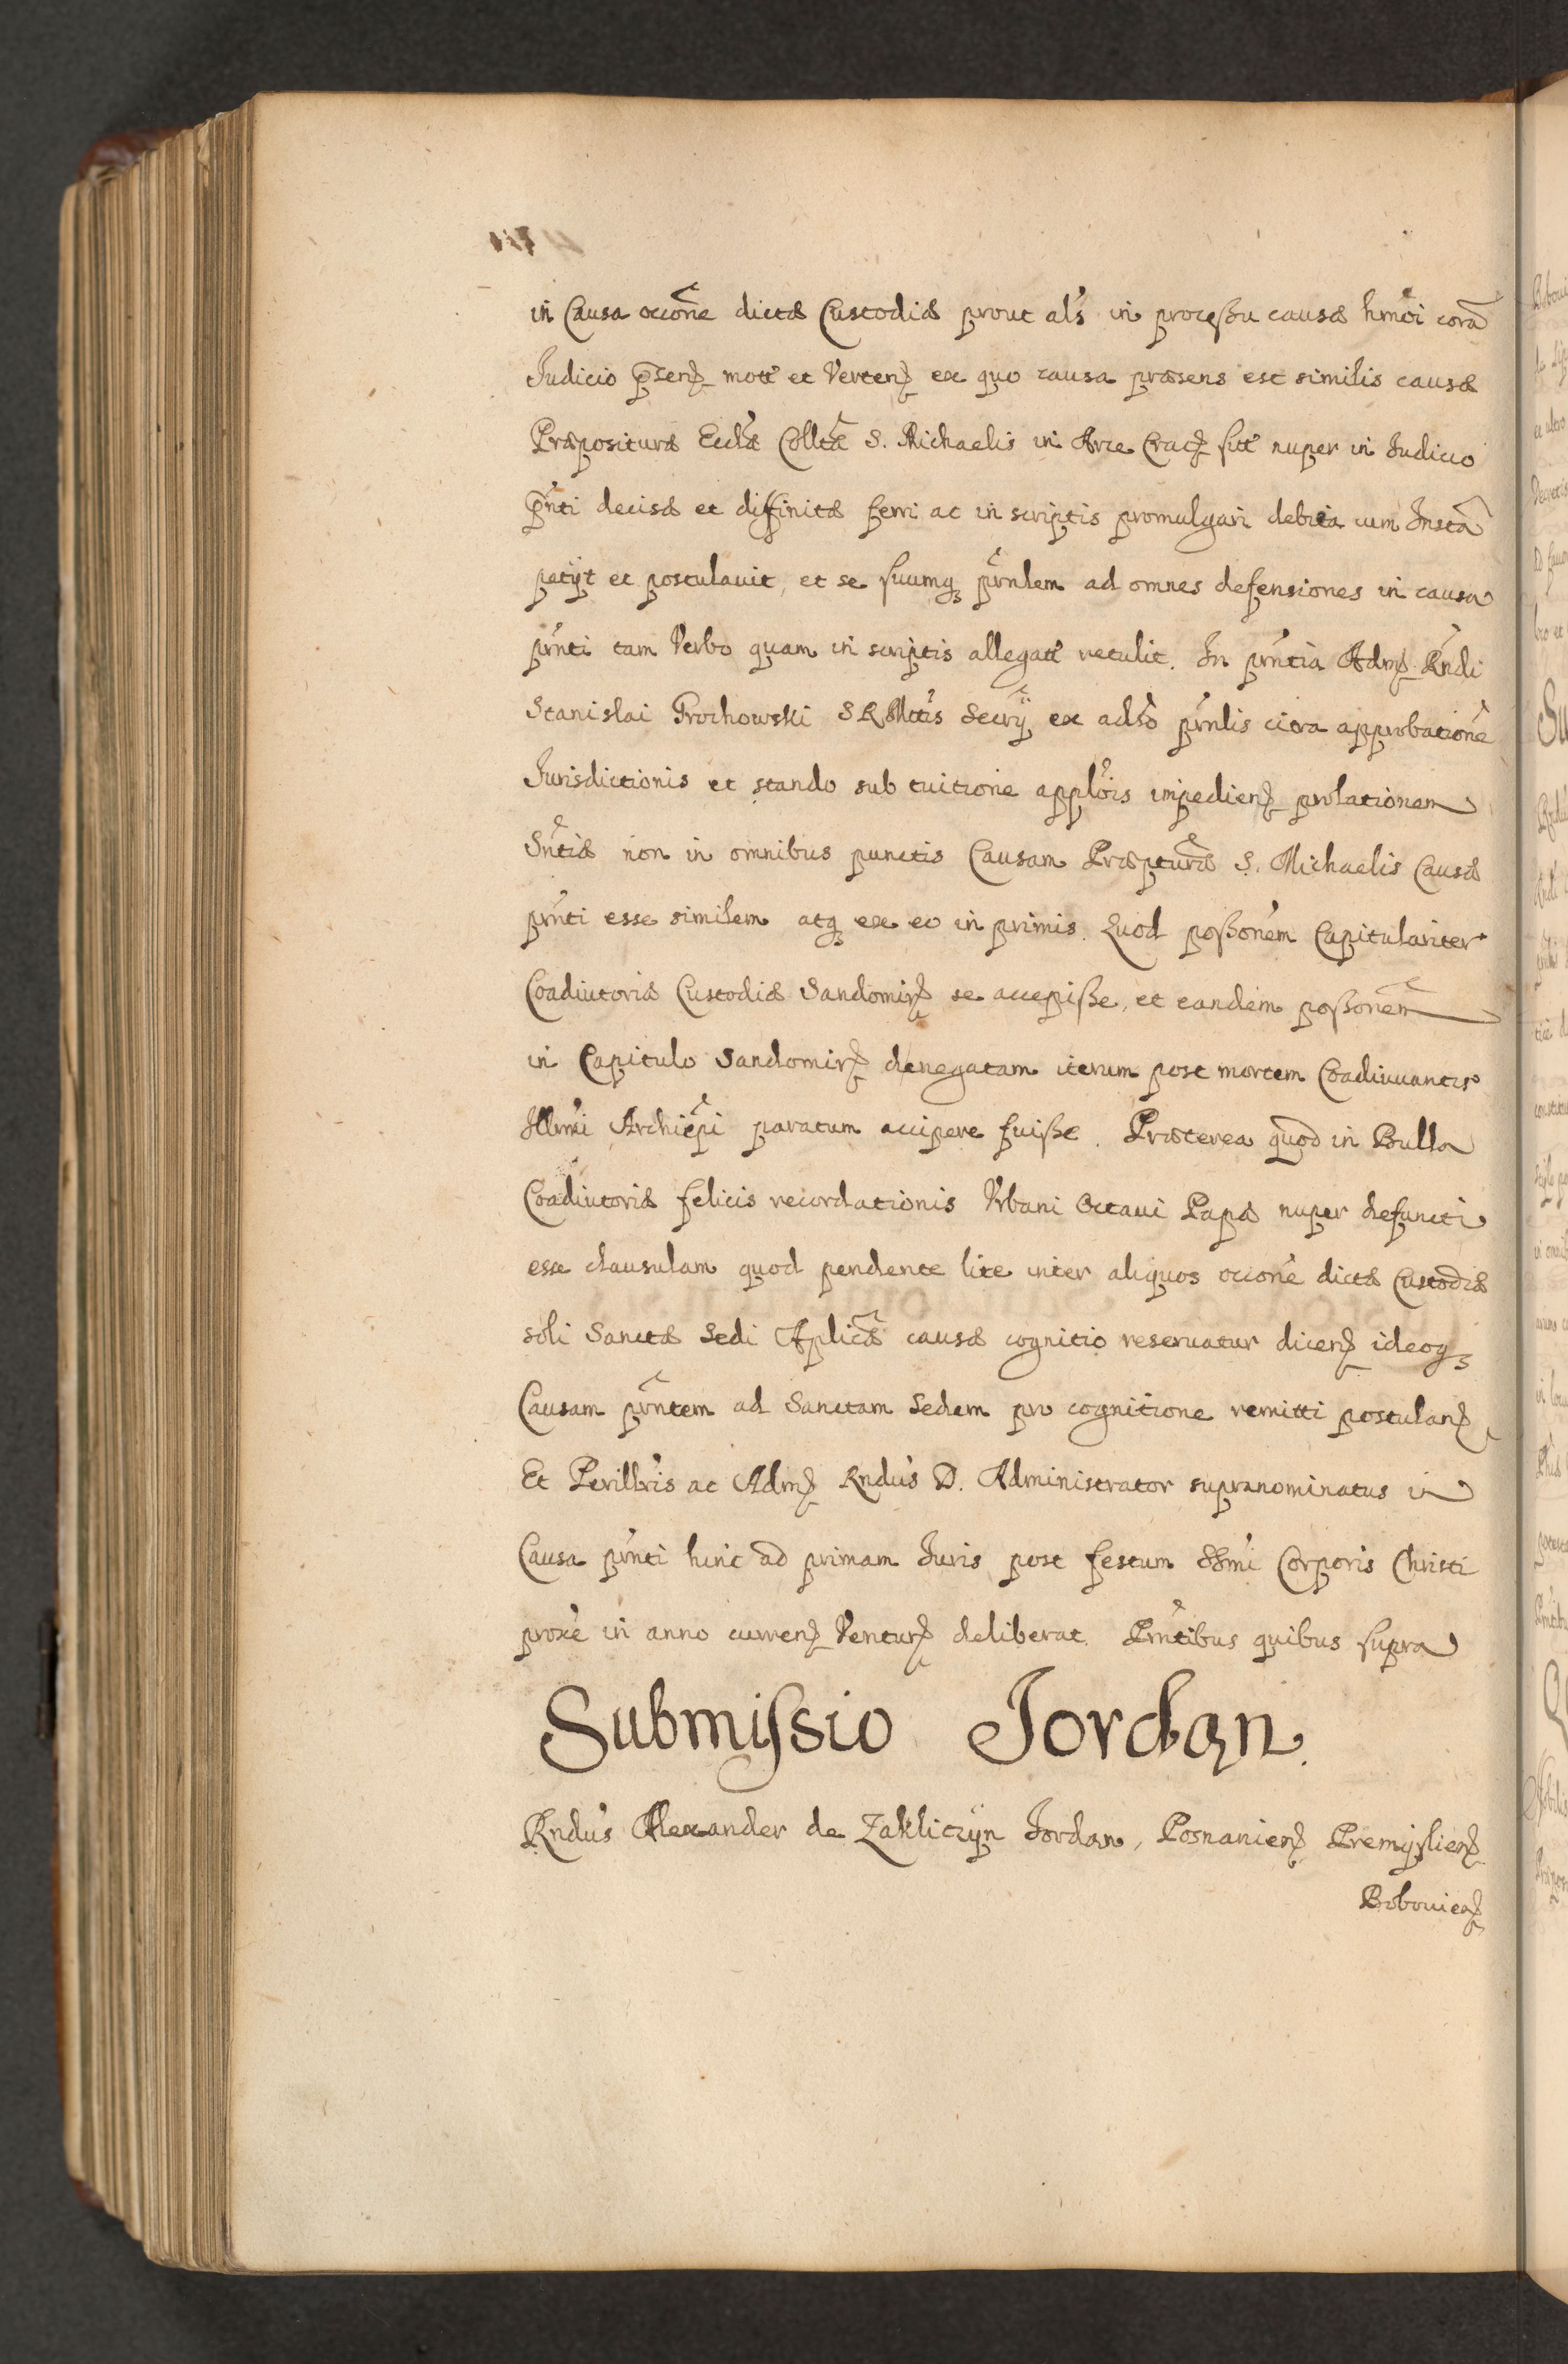 in Causa occõne dictæ Custodiæ prout als in processu causæ hmõi corã
Judicio p̃sen mott et Verten ex quo causa præsens est similis causæ
Præpositura Eccl̃æ Collt̃æ S. Michaelis in Arce Crac sitt nuper in Judicio
pñti decisæ et diffinitæ ferri ac in scriptis promulgari debita cum Instã
petÿt et postulavit, et se suumq prñlem ad omnes defensiones in causa
prñti tam Verbo quam in scriptis allegatt retulit. In prñtia Adm Rñdi
Stanislai Grochowski SRMttis Secrÿ ex adso prñlis citra approbationẽ
Jurisdictionis et stando sub tuitione applõis impedien prolationem
Sñtiæ non in omnibus punctis Causam Præpturæ S. Michaelis Causæ
prñti esse similem atq ex eo in primis. Quod possonẽm Capitulariter
Coadiutoriæ Custodiæ Sandomir se accepisse, et eandem possonẽm
in Capitulo Sandomir denegatam iterum post mortem Coadiuuantis
Illmi Archiẽpi paratum accipere fuisse. Præterea quod in Bulla
Coadiutoriæ felicis recordationis Vrbani Octaui Papæ nuper defuncti
esse clausulam quod pendente lite inter aliquos occionẽ dictæ Custodiæ
soli Sanctæ Sedi Aplicæ causæ cognitio reseruatur dicen ideoq
Causam prñtem ad Sanctam Sedem pro cognitione remitti postulan
Et Perillris ac Adm Rndus D. Administrator supranominatus in
Causa prñti hinc ad primam Juris post festum SSmi Corporis Christi
proxe in anno curren Ventur deliberat. Prñtibus quibus supra
Submissio Jordan.
Rndus Alexander de Zakliczÿn Jordan, Posnanien Premÿslien
Bobouien